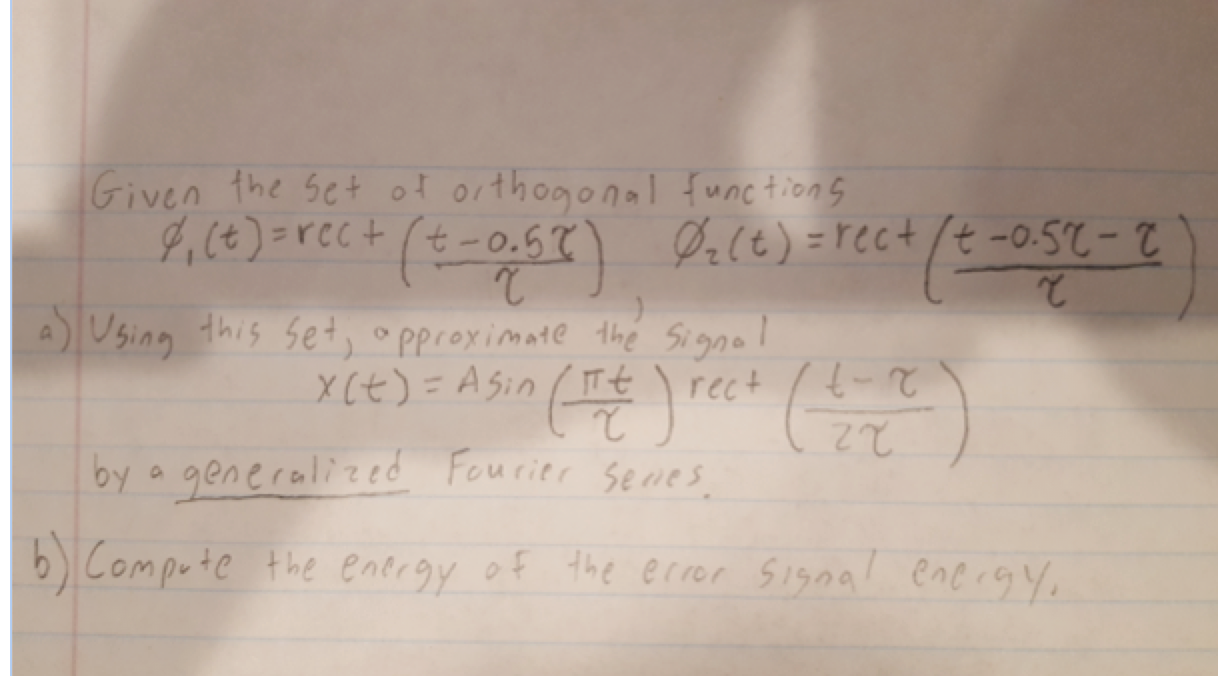 Given the set of orthogonal functions
Ø₁(t) = rect ((t - 0.5τ)/τ), Ø₂(t) = rect ((t - 0.5τ - τ)/τ)
a) Using this set, approximate the signal
x(t) = A sin (πt/τ) rect ((t - τ)/2τ)
by a generalized Fourier series.
b) Compute the energy of the error signal energy.